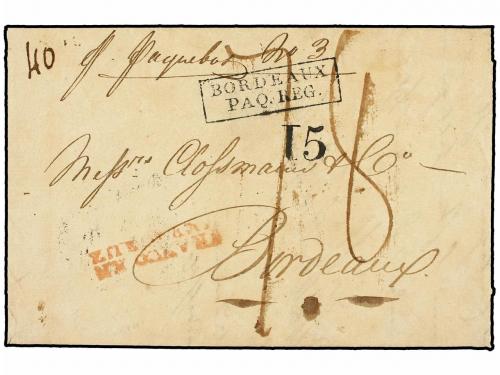 40
p. paquebot No 3
BORDEAUX
PAQ. REG.
15
18
Messrs Clossmann & Co
Bordeaux.